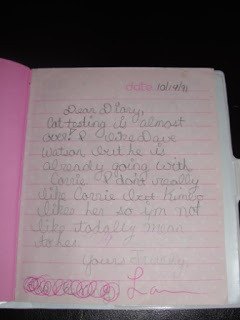 date 10/14/91
Dear Diary,
Cat testing is almost
over! I like Dave
Watson, but he is
already going with
Corrie. I don't really
like Corrie but Kimby
likes her so im not
like totally mean
to her.
Yours Truely,